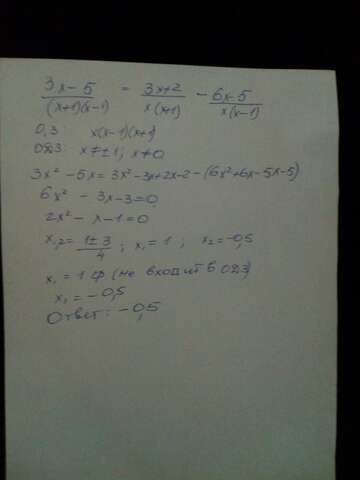 (3x-5)/((x+1)(x-1)) = (3x+2)/(x(x+1)) - (6x-5)/(x(x-1))
О,З: x(x-1)(x+1)
ОДЗ: x≠±1; x≠0
3x² - 5x = 3x² - 3x + 2x - 2 - (6x² + 6x - 5x - 5)
6x² - 3x - 3 = 0
2x² - x - 1 = 0
x₁,₂ = (1±3)/4 ; x₁ = 1 ; x₂ = -0,5
x₁ = 1 ф (не входит в ОДЗ)
x₁ = -0,5
Ответ: -0,5